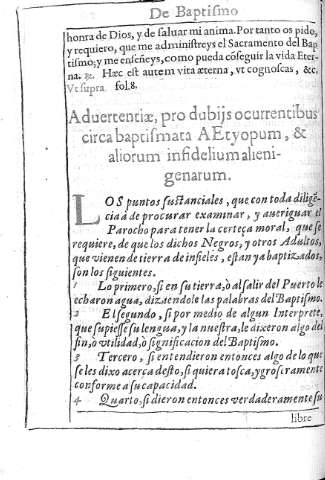 De Baptismo
honra de Dios, y de saluar mi anima. Por tanto os pido,
y requiero, que me administreys el Sacramento del Bap
tismo; y me enseñeys, como pueda cõseguir la vida Eter-
na. &c. Hæc est autem vita æterna, vt cognoscas, &c.
Vt supra fol. 8.
Aduertentiæ, pro dubijs ocurrentibus
circa baptismata AEtyopum, &
aliorum infidelium alieni-
genarum.
LOS puntos sustanciales, que con toda diligẽ-
cia à de procurar examinar, y aueriguar el
Parocho para tener la certeça moral, que se
requiere, de que los dichos Negros, y otros Adultos,
que vienen de tierra de infieles, estan ya baptizados,
son los siguientes.
1 Lo primero, si en su tierra, ò al salir del Puerto le
echaron agua, diziendole las palabras del Baptismo.
2 El segundo, si por medio de algun Interprete,
que supiesse su lengua, y la nuestra, le dixeron algo del
fin, ò vtilidad, ò significacion del Baptismo.
3 Tercero, si entendieron entonces algo de lo que
se les dixo acerca desto, si quiera tosca, y grosramente
conforme a su capacidad.
4 Quarto, si dieron entonces verdaderamente su
libre